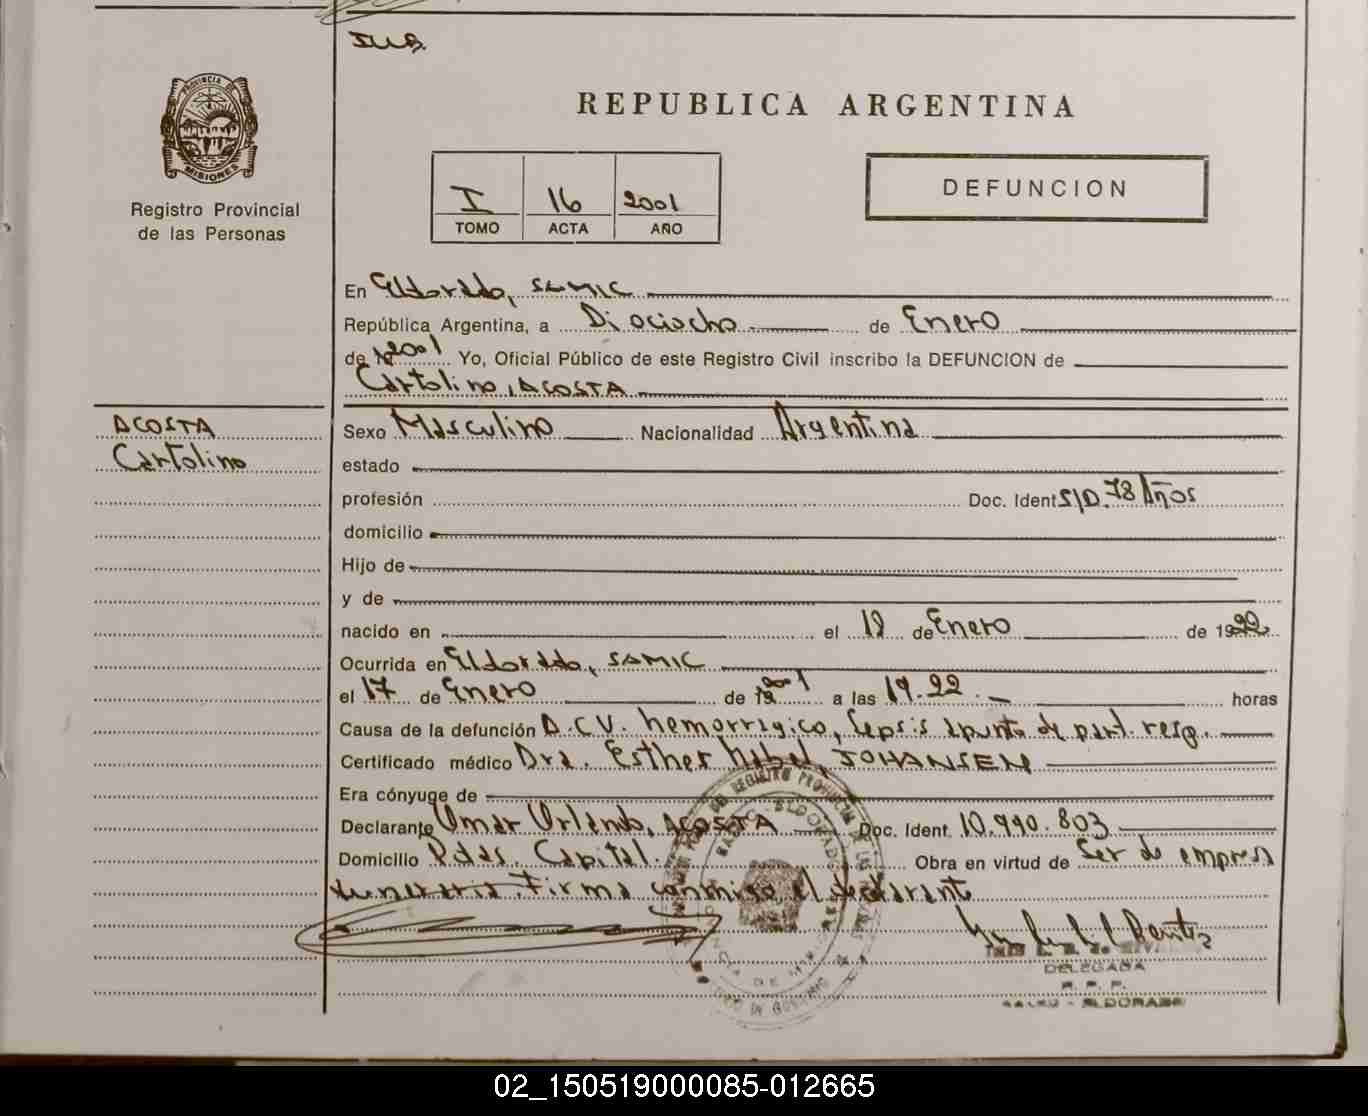 REPUBLICA ARGENTINA
PROVINCIA DE
MISIONES
Registro Provincial
de las Personas
I 16 2001
TOMO ACTA AÑO
DEFUNCION
En Eldorado, SAMIC
República Argentina, a Diociocho de Enero
de 2001 Yo, Oficial Público de este Registro Civil inscribo la DEFUNCION de
Cartolino, ACOSTA
ACOSTA
Cartolino
Sexo Masculino Nacionalidad Argentina
estado
profesión Doc. Ident S/D. 78 Años
domicilio
Hijo de
y de
nacido en el de Enero de 19
Ocurrida en Eldorado, SAMIC
el 17 de Enero de 2001 a las 19.22 horas
Causa de la defunción A.C.V. hemorrigico, Sepsis apunto de part. resp.
Certificado médico Dra. Esther Mabel, JOHANSEN
Era cónyuge de
Declarante Omar Orlando, ACOSTA Doc. Ident. 10.990.803
Domicilio Pdas. Capital. Obra en virtud de Ser de empresa
funeraria. Firma conmigo el declarante
DELEGADA
R. P. P.
ELDORADO
02_150519000085-012665